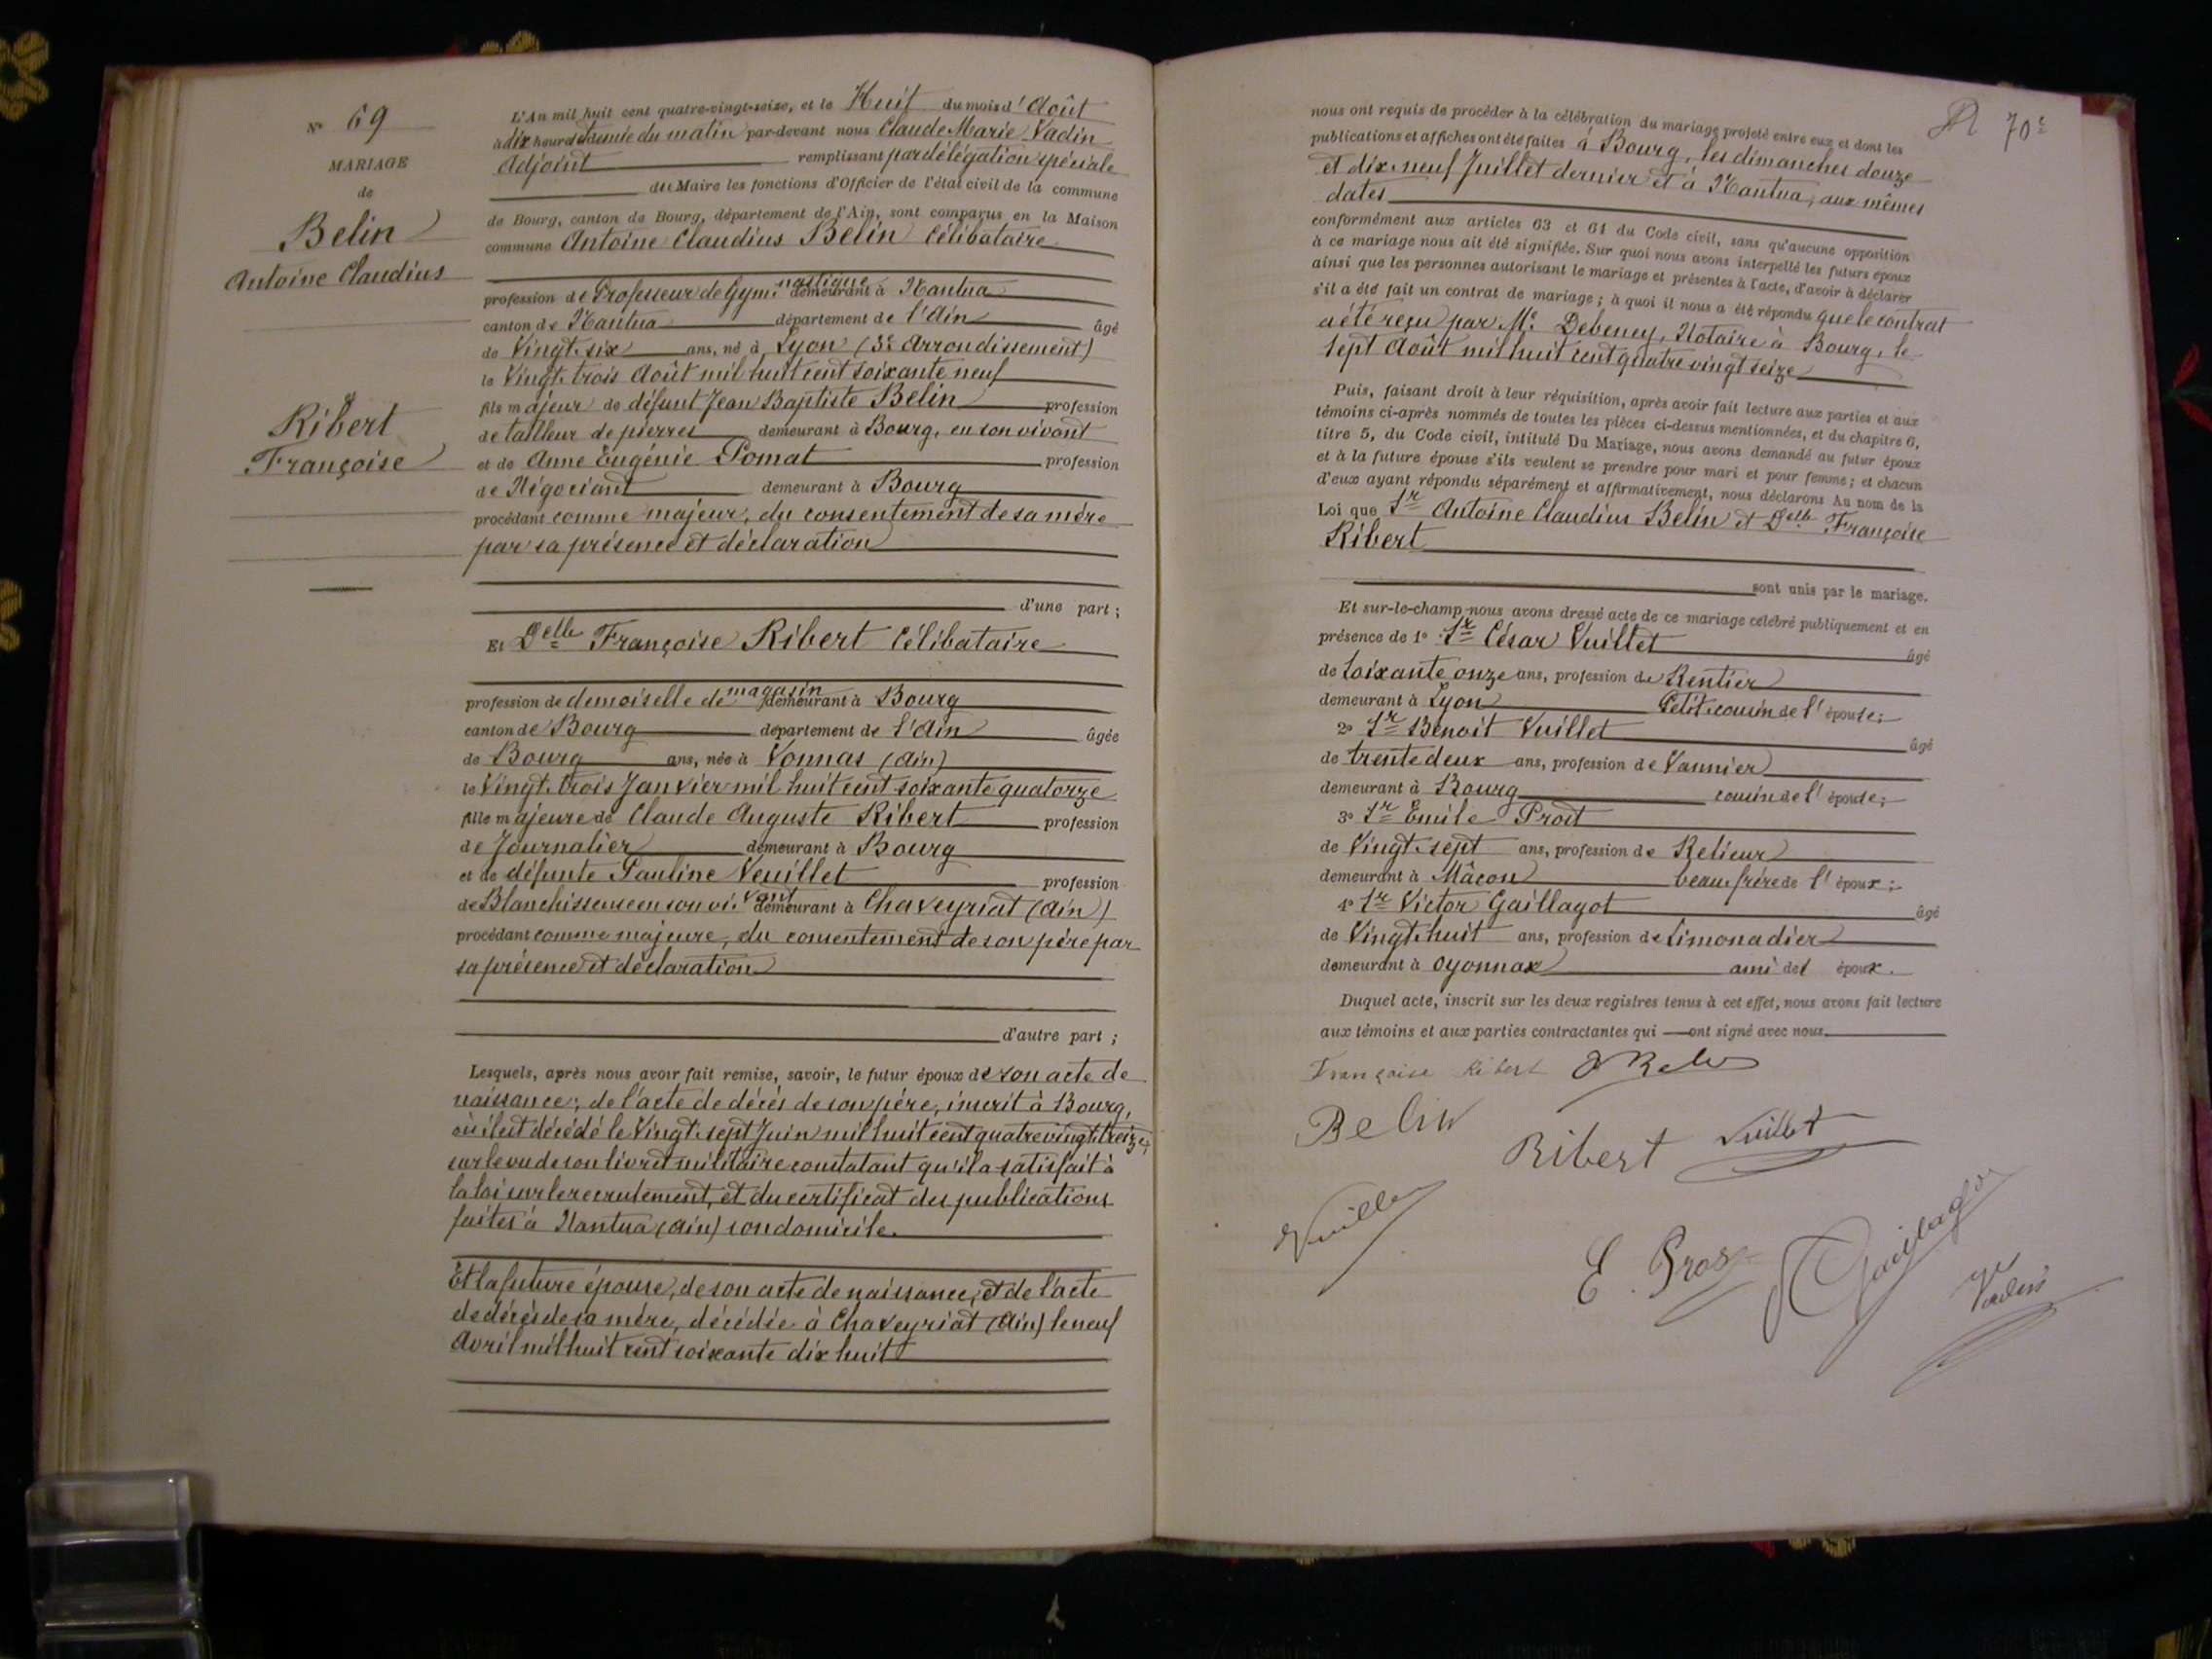 N° 69
MARIAGE
de
Belin
Antoine Claudius
Ribert
Françoise
L'An mil huit cent quatre-vingt-seize, et le Huit du mois d'Août
à dix heures et demie du matin par-devant nous Claude Marie Vadin
Adjoint remplissant par délégation spéciale
du Maire les fonctions d'Officier de l'état civil de la commune
de Bourg, canton de Bourg, département de l'Ain, sont comparus en la Maison
commune Antoine Claudius Belin Célibataire
profession de Professeur de Gymnastique demeurant à Nantua
canton de Nantua département de l'Ain âgé
de Vingt-six ans, né à Lyon (3e Arrondissement)
le Vingt-trois Août mil huit cent soixante neuf
fils majeur de défunt Jean Baptiste Belin profession
de tailleur de pierres demeurant à Bourg, en son vivant
et de Anne Eugénie Pomat profession
de Négociant demeurant à Bourg
procédant comme majeur, du consentement de sa mère
par sa présence et déclaration
d'une part ;
Et Delle Françoise Ribert Célibataire
profession de demoiselle de magasin demeurant à Bourg
canton de Bourg département de l'Ain âgée
de Bourg ans, née à Vonnas (Ain)
le Vingt-trois Janvier mil huit cent soixante quatorze
fille majeure de Claude Auguste Ribert profession
de Journalier demeurant à Bourg
et de défunte Pauline Veuillet profession
de Blanchisseuse en son vivant demeurant à Chaveyriat (Ain)
procédant comme majeure, du consentement de son père par
sa présence et déclaration
d'autre part ;
Lesquels, après nous avoir fait remise, savoir, le futur époux de son acte de
naissance ; de l'acte de décès de son père, inscrit à Bourg,
où il est décédé le Vingt-sept Juin mil huit cent quatre vingt-treize ;
sur le vu de son livret militaire constatant qu'il a satisfait à
la loi sur le recrutement, et du certificat des publications
faites à Nantua (Ain) son domicile.
Et la future épouse, de son acte de naissance, et de l'acte
de décès de sa mère, décédée à Chaveyriat (Ain) le neuf
Avril mil huit cent soixante dix huit
70e
nous ont requis de procéder à la célébration du mariage projeté entre eux et dont les
publications et affiches ont été faites à Bourg, les dimanches douze
et dix-neuf Juillet dernier et à Nantua, aux mêmes
dates
conformément aux articles 63 et 64 du Code civil, sans qu'aucune opposition
à ce mariage nous ait été signifiée. Sur quoi nous avons interpellé les futurs époux
ainsi que les personnes autorisant le mariage et présentes à l'acte, d'avoir à déclarer
s'il a été fait un contrat de mariage ; à quoi il nous a été répondu que le contrat
a été reçu par Me Debeney, Notaire à Bourg, le
sept Août mil huit cent quatre vingt seize
Puis, faisant droit à leur réquisition, après avoir fait lecture aux parties et aux
témoins ci-après nommés de toutes les pièces ci-dessus mentionnées, et du chapitre 6,
titre 5, du Code civil, intitulé Du Mariage, nous avons demandé au futur époux
et à la future épouse s'ils veulent se prendre pour mari et pour femme ; et chacun
d'eux ayant répondu séparément et affirmativement, nous déclarons Au nom de la
Loi que Sr Antoine Claudius Belin et Delle Françoise
Ribert
sont unis par le mariage.
Et sur-le-champ nous avons dressé acte de ce mariage célébré publiquement et en
présence de 1° Sr César Vuillet âgé
de Soixante onze ans, profession de Rentier
demeurant à Lyon Petit cousin de l'épouse ;
2° Sr Benoit Vuillet âgé
de trente deux ans, profession de Vannier
demeurant à Bourg cousin de l'épouse ;
3° Sr Emile Prost
de Vingt-sept ans, profession de Relieur
demeurant à Mâcon beau-frère de l'époux ;
4° Sr Victor Gaillagot âgé
de Vingt-huit ans, profession de Limonadier
demeurant à Oyonnax ami de l'époux.
Duquel acte, inscrit sur les deux registres tenus à cet effet, nous avons fait lecture
aux témoins et aux parties contractantes qui ont signé avec nous.
Françoise Ribert
Belin
Ribert Vuillet
Vuillet
E. Prost Gaillagot
Vadin